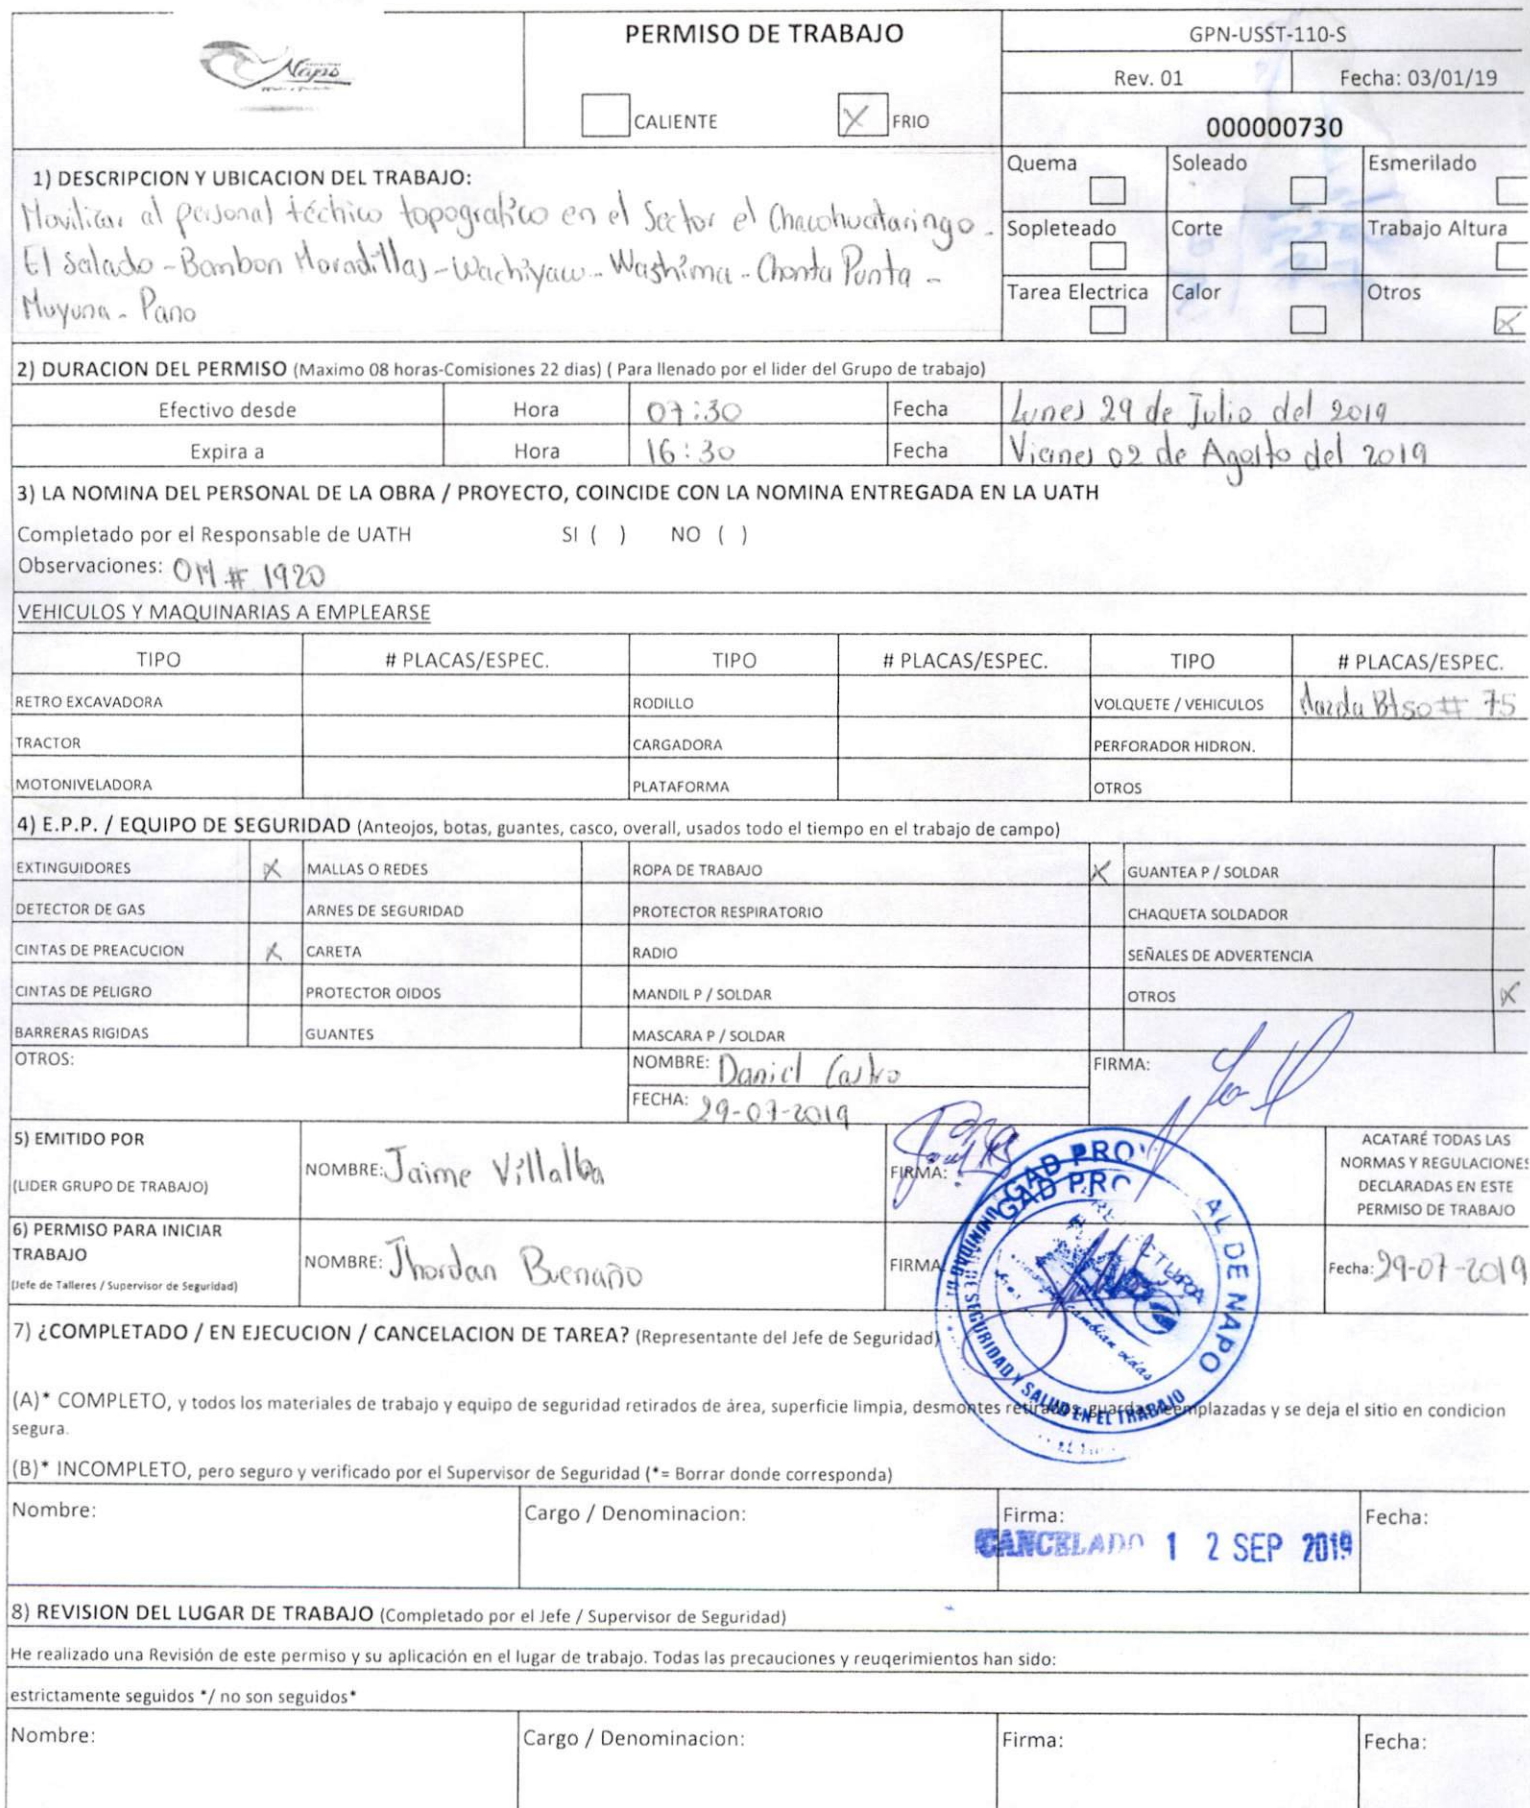 Napo
PERMISO DE TRABAJO
CALIENTE
X FRIO
GPN-USST-110-S
Rev. 01
Fecha: 03/01/19
000000730
1) DESCRIPCION Y UBICACION DEL TRABAJO:
Movilizar al personal técnico topografico en el Sector el Chacohuataringo -
El Salado - Bombon Moradillas - Wachiyacu - Washima - Chonta Punta -
Muyuna - Pano
Quema
Soleado
Esmerilado
Sopleteado
Corte
Trabajo Altura
Tarea Electrica
Calor
Otros X
2) DURACION DEL PERMISO (Maximo 08 horas-Comisiones 22 dias) ( Para llenado por el lider del Grupo de trabajo)
Efectivo desde Hora 07:30 Fecha Lunes 29 de Julio del 2019
Expira a Hora 16:30 Fecha Viernes 02 de Agosto del 2019
3) LA NOMINA DEL PERSONAL DE LA OBRA / PROYECTO, COINCIDE CON LA NOMINA ENTREGADA EN LA UATH
Completado por el Responsable de UATH SI ( ) NO ( )
Observaciones: OM # 1920
VEHICULOS Y MAQUINARIAS A EMPLEARSE
TIPO # PLACAS/ESPEC. TIPO # PLACAS/ESPEC. TIPO # PLACAS/ESPEC.
RETRO EXCAVADORA RODILLO VOLQUETE / VEHICULOS Mazda Bt50 # 75
TRACTOR CARGADORA PERFORADOR HIDRON.
MOTONIVELADORA PLATAFORMA OTROS
4) E.P.P. / EQUIPO DE SEGURIDAD (Anteojos, botas, guantes, casco, overall, usados todo el tiempo en el trabajo de campo)
EXTINGUIDORES X MALLAS O REDES ROPA DE TRABAJO X GUANTEA P / SOLDAR
DETECTOR DE GAS ARNES DE SEGURIDAD PROTECTOR RESPIRATORIO CHAQUETA SOLDADOR
CINTAS DE PREACUCION X CARETA RADIO SEÑALES DE ADVERTENCIA
CINTAS DE PELIGRO PROTECTOR OIDOS MANDIL P / SOLDAR OTROS X
BARRERAS RIGIDAS GUANTES MASCARA P / SOLDAR
OTROS:
NOMBRE: Daniel Castro
FIRMA:
FECHA: 29-07-2019
5) EMITIDO POR
(LIDER GRUPO DE TRABAJO)
NOMBRE: Jaime Villalba
FIRMA:
ACATARÉ TODAS LAS
NORMAS Y REGULACIONES
DECLARADAS EN ESTE
PERMISO DE TRABAJO
6) PERMISO PARA INICIAR
TRABAJO
(Jefe de Talleres / Supervisor de Seguridad)
NOMBRE: Jhordan Buenaño
FIRMA
Fecha: 29-07-2019
GAD PRO
GAD PRO
AL DE NAPO
DE SEGURIDAD Y SALUD EN EL TRABAJO
cambian vidas
7) ¿COMPLETADO / EN EJECUCION / CANCELACION DE TAREA? (Representante del Jefe de Seguridad)
(A)* COMPLETO, y todos los materiales de trabajo y equipo de seguridad retirados de área, superficie limpia, desmontes retirados, guardas reemplazadas y se deja el sitio en condicion
segura.
(B)* INCOMPLETO, pero seguro y verificado por el Supervisor de Seguridad (*= Borrar donde corresponda)
Nombre: Cargo / Denominacion: Firma: Fecha:
CANCELADO 1 2 SEP 2019
8) REVISION DEL LUGAR DE TRABAJO (Completado por el Jefe / Supervisor de Seguridad)
He realizado una Revisión de este permiso y su aplicación en el lugar de trabajo. Todas las precauciones y reuqerimientos han sido:
estrictamente seguidos */ no son seguidos*
Nombre: Cargo / Denominacion: Firma: Fecha: